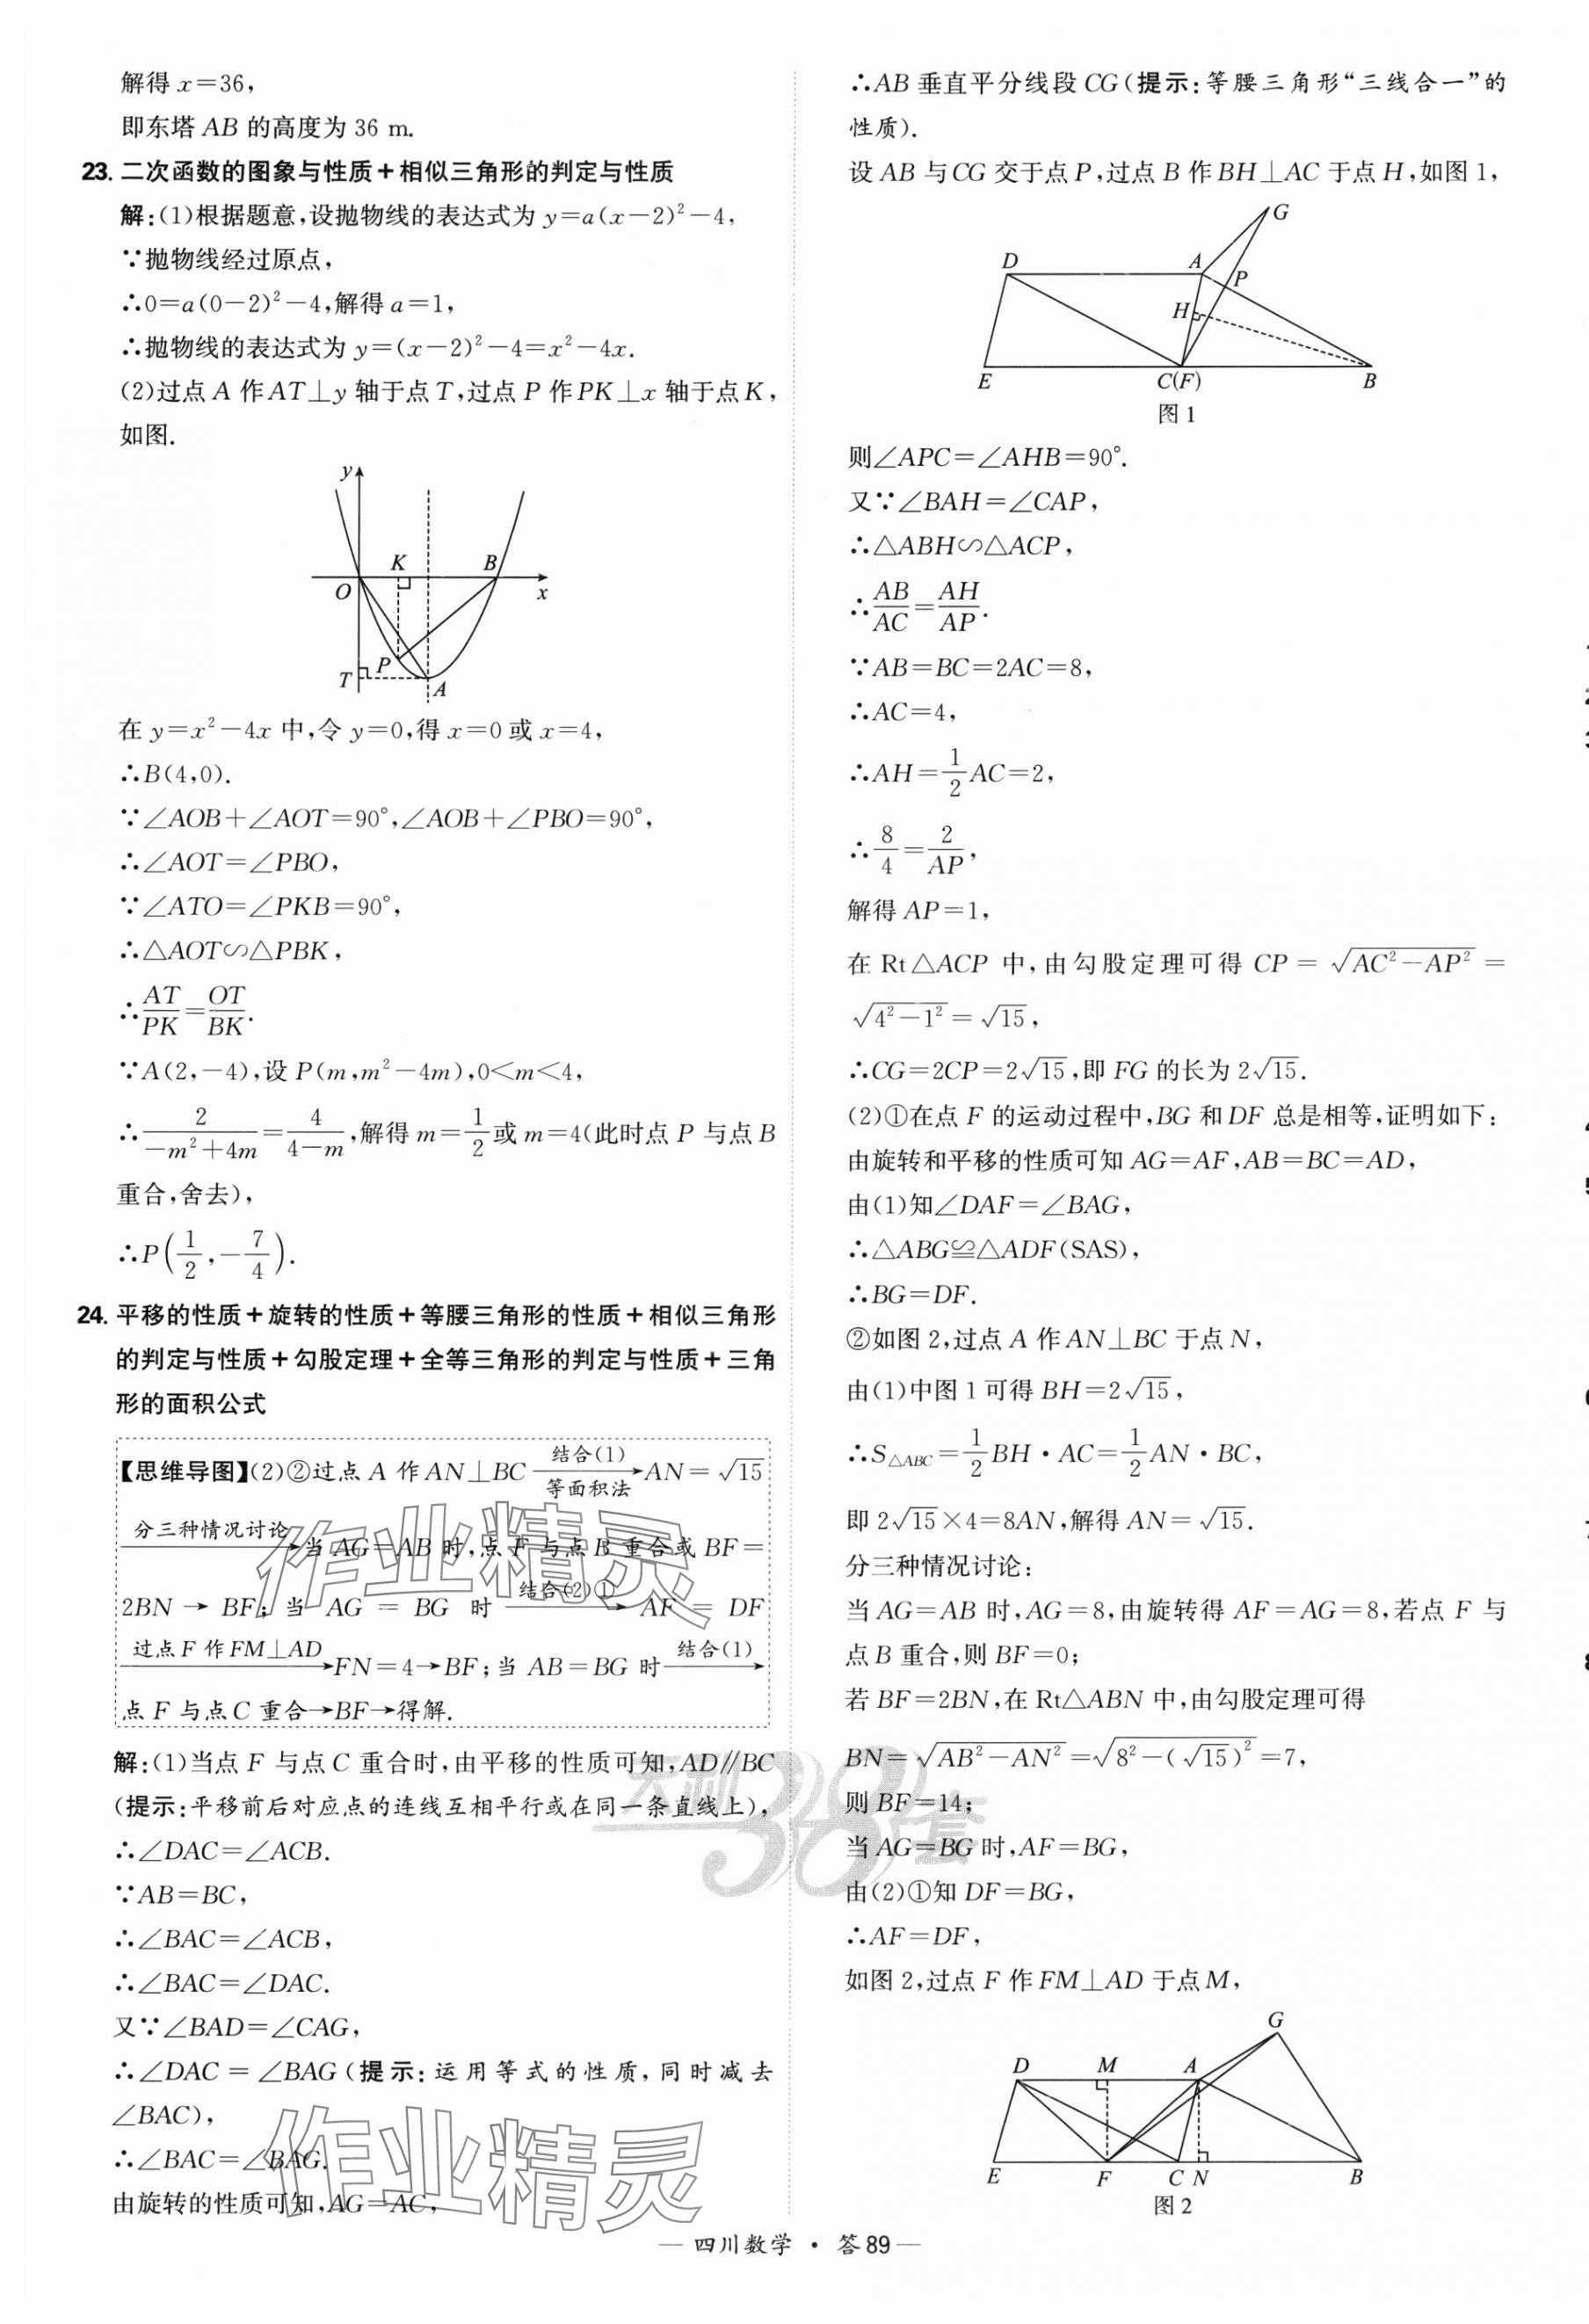 解得 x=36,
即东塔 AB 的高度为 36 m.
23. 二次函数的图象与性质+相似三角形的判定与性质
解:(1)根据题意,设抛物线的表达式为 y=a(x-2)²-4,
∵抛物线经过原点,
∴0=a(0-2)²-4,解得 a=1,
∴抛物线的表达式为 y=(x-2)²-4=x²-4x.
(2)过点 A 作 AT⊥y 轴于点 T,过点 P 作 PK⊥x 轴于点 K,
如图.
y
K B
O x
P
T A
在 y=x²-4x 中,令 y=0,得 x=0 或 x=4,
∴B(4,0).
∵∠AOB+∠AOT=90°,∠AOB+∠PBO=90°,
∴∠AOT=∠PBO,
∵∠ATO=∠PKB=90°,
∴△AOT∽△PBK,
∴AT/PK=OT/BK.
∵A(2,-4),设 P(m,m²-4m),0<m<4,
∴2/(-m²+4m)=4/(4-m),解得 m=1/2 或 m=4(此时点 P 与点 B
重合,舍去),
∴P(1/2,-7/4).
24. 平移的性质+旋转的性质+等腰三角形的性质+相似三角形
的判定与性质+勾股定理+全等三角形的判定与性质+三角
形的面积公式
【思维导图】(2)②过点 A 作 AN⊥BC 结合(1) 等面积法→AN=√15
分三种情况讨论→当 AG=AB 时,点 F 与点 B 重合或 BF=
2BN→BF;当 AG=BG 时 结合(2)①→AF=DF
过点 F 作 FM⊥AD→FN=4→BF;当 AB=BG 时 结合(1)→
点 F 与点 C 重合→BF→得解.
解:(1)当点 F 与点 C 重合时,由平移的性质可知,AD∥BC
(提示:平移前后对应点的连线互相平行或在同一条直线上),
∴∠DAC=∠ACB.
∵AB=BC,
∴∠BAC=∠ACB,
∴∠BAC=∠DAC.
又∵∠BAD=∠CAG,
∴∠DAC=∠BAG(提示:运用等式的性质,同时减去
∠BAC),
∴∠BAC=∠BAG.
由旋转的性质可知,AG=AC,
∴AB 垂直平分线段 CG(提示:等腰三角形“三线合一”的
性质).
设 AB 与 CG 交于点 P,过点 B 作 BH⊥AC 于点 H,如图 1,
G
D A P
H
E C(F) B
图 1
则∠APC=∠AHB=90°.
又∵∠BAH=∠CAP,
∴△ABH∽△ACP,
∴AB/AC=AH/AP.
∵AB=BC=2AC=8,
∴AC=4,
∴AH=1/2AC=2,
∴8/4=2/AP,
解得 AP=1,
在 Rt△ACP 中,由勾股定理可得 CP=√(AC²-AP²)=
√(4²-1²)=√15,
∴CG=2CP=2√15,即 FG 的长为 2√15.
(2)①在点 F 的运动过程中,BG 和 DF 总是相等,证明如下:
由旋转和平移的性质可知 AG=AF,AB=BC=AD,
由(1)知∠DAF=∠BAG,
∴△ABG≌△ADF(SAS),
∴BG=DF.
②如图 2,过点 A 作 AN⊥BC 于点 N,
由(1)中图 1 可得 BH=2√15,
∴S△ABC=1/2BH·AC=1/2AN·BC,
即 2√15×4=8AN,解得 AN=√15.
分三种情况讨论:
当 AG=AB 时,AG=8,由旋转得 AF=AG=8,若点 F 与
点 B 重合,则 BF=0;
若 BF=2BN,在 Rt△ABN 中,由勾股定理可得
BN=√(AB²-AN²)=√(8²-(√15)²)=7,
则 BF=14;
当 AG=BG 时,AF=BG,
由(2)①知 DF=BG,
∴AF=DF,
如图 2,过点 F 作 FM⊥AD 于点 M,
G
D M A
E F C N B
图 2
— 四川数学 · 答89 —
作业精灵
作业精灵
天利38套